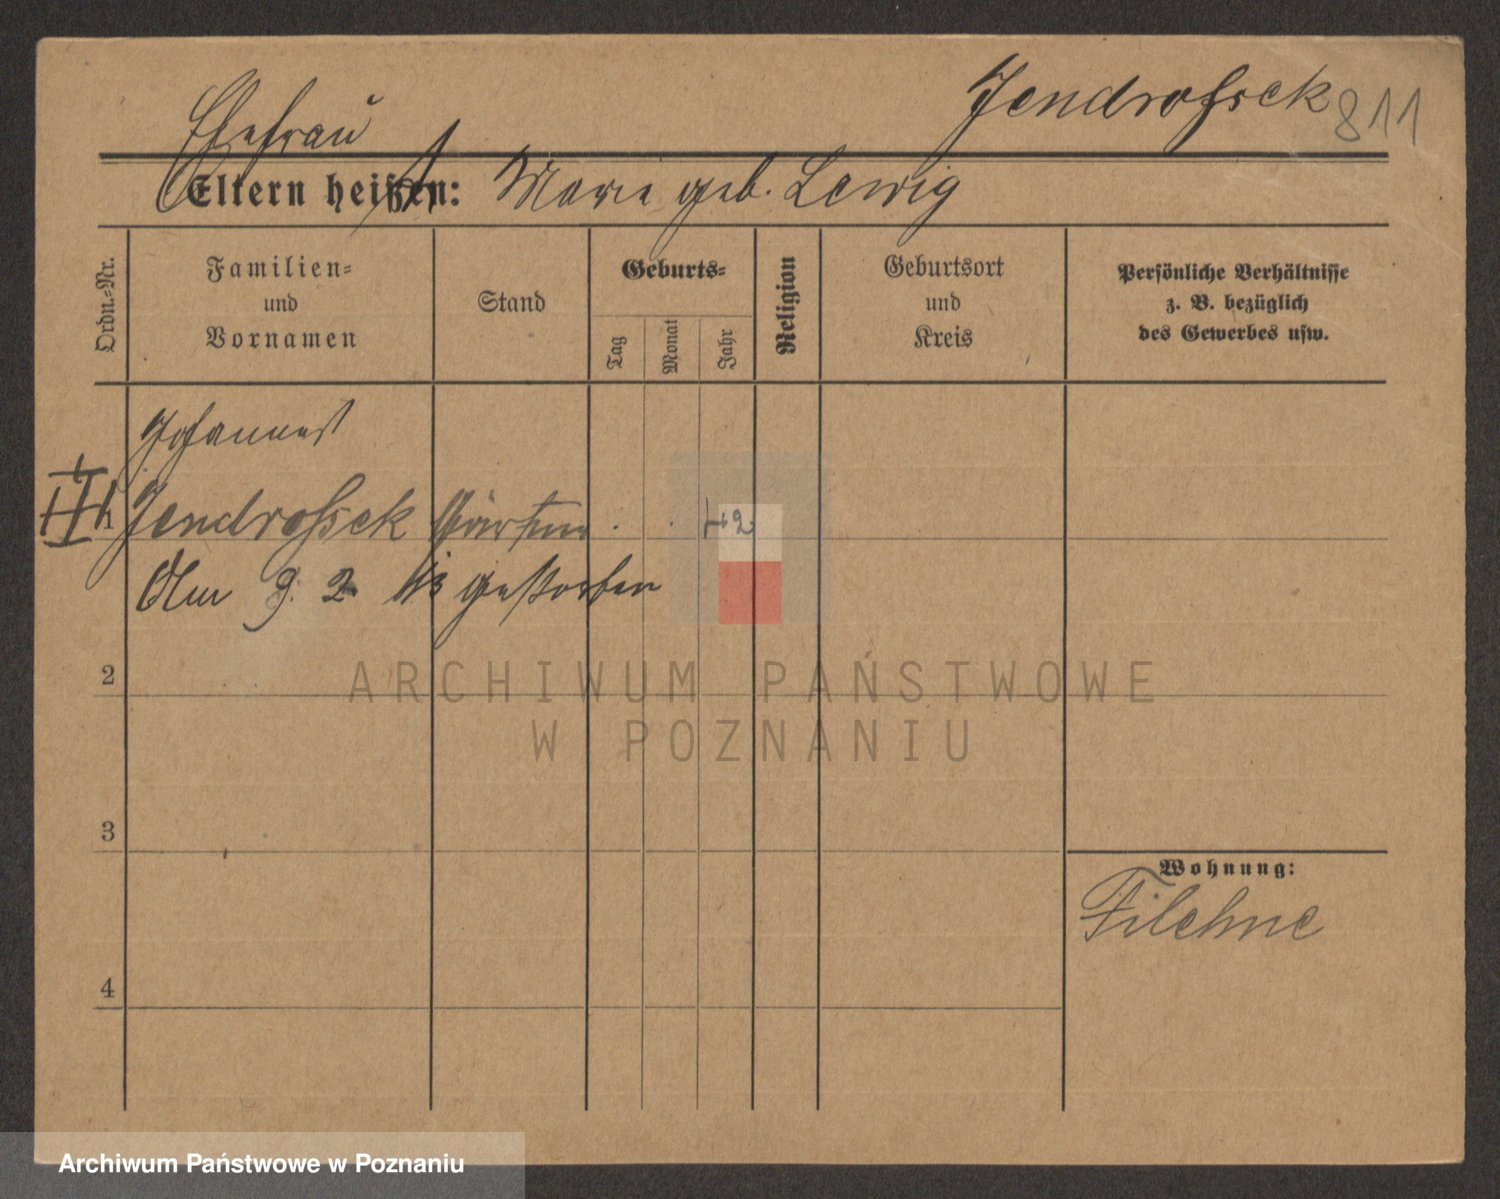 Jendrossek 811
Ehefrau
Eltern heißen: Marie geb. Lewig
Ordn.=Nr.
Familien=
und
Vornamen
Stand
Geburts=
Tag
Monat
Jahr
Religion
Geburtsort
und
Kreis
Persönliche Verhältnisse
z. B. bezüglich
des Gewerbes usw.
Johannes
1 Jendrossek Gärtner 42
Am 9. 2. 13 gestorben
2
ARCHIWUM PAŃSTWOWE
W POZNANIU
3
Wohnung:
Filehne
4
Archiwum Państwowe w Poznaniu